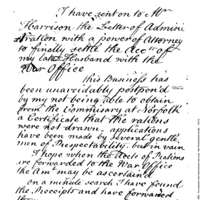 I have sent on to Mr
Harrison the Letter of Admini
stration with a power of Attorney
to finally settle the Acct of
my late Husband with the
War Office
this Business has
been unavoidably postpon'd
by my not being able to obtain
from the Commissary at Norfolk
a Certificate that the rations
were not drawn, applications
have been made by several gentle
men of Respectability but in vain.
I hope when the Accts of Rations
are forwarded to the War Office
the Amt may be ascertain'd
on a minute search I have found
the Receipts and have forwarded